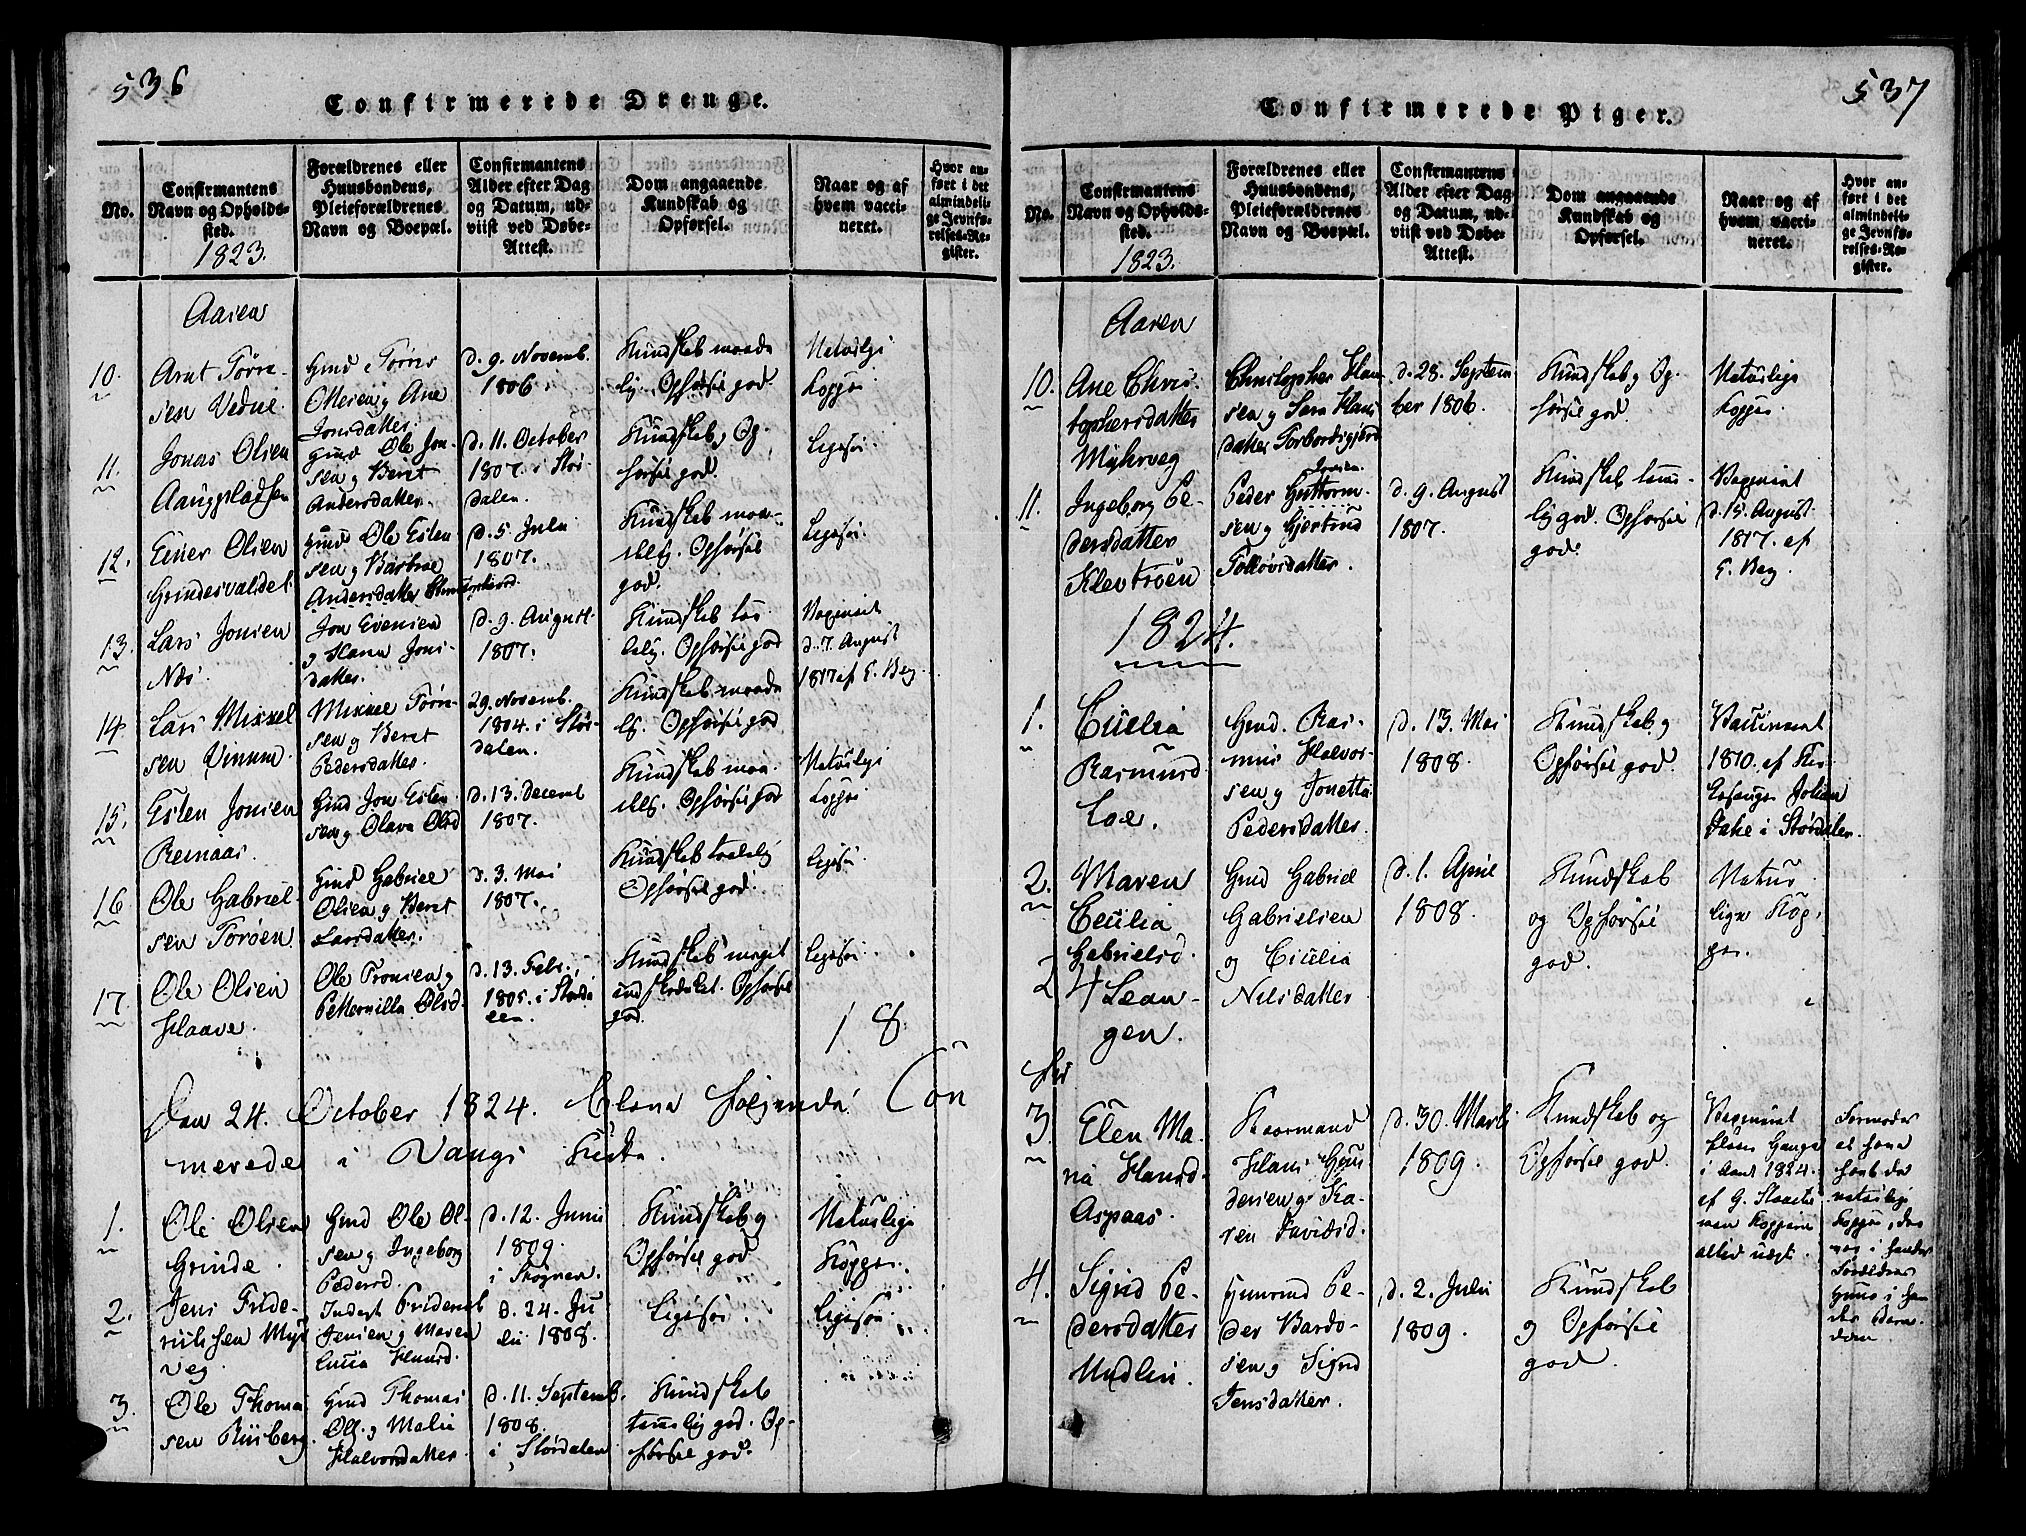 536
Confirmerede Drenge.
No.
Confirmantens Navn og Opholds-sted.
1823.
Forældrenes eller Huusbondens, Pleieforældrenes Navn og Boepæl.
Confirmantens Alder efter Dag og Datum, ud-viist ved Døbe-Attest.
Dom angaaende Kundskab og Opførsel.
Naar og af hvem vacci-neret.
Hvor an-ført i det almindeli-ge Jevnfø-relses-Re-gister.
Aasen
10.
Arnt Tørris-
sen Vedul.
Gmd Tørris
Ottesen og Ane
Jonsdatter.
d. 9. Novemb.
1806.
Kundskab maade
lig. Opførsel god.
Naturlige
Kopper.
11.
Jonas Olsen
Aaugpladsen
Gmd Ole Jon-
sen og Beret
Andersdatter.
d. 11. October
1807. i Stør-
dalen.
Kundskab og Op-
førsel god.
Ligesaa.
12.
Einer Olsen
Grindesvaldet.
Gmd Ole Esten
sen og Barbroe
Andersdatter
d. 5 Julii
1807.
Kundskab maa-
delig. Opførsel
god.
Ligesaa.
13.
Lars Jonsen
Næs
Jon Evensen
og Hanna Jons-
datter.
d. 9. August.
1807.
Kundskab taa
lelig. Opførsel god
Vaccineret
d. 7. August
1817 af E. Berg.
14.
Lars Mikkel
sen Vinum.
Mikkel Tørri-
sen og Beret
Pedersdatter.
29. Novemb.
1804. i Stør-
dalen.
Kundskab maade
lig. Opførsel god
Naturlige
Kopper
15.
Esten Jonsen
Reinaas.
Gmd Jon Esten
sen og Olava Olsd
d. 13. Decemb
1807.
Kundskab maa-
delig. Opførsel god
16
Ole Gabriel-
sen Torøen
Gmd Gabriel
Olsen og Beret
Larsdatter.
d. 3. Mai
1807.
Kundskab taalelig
Opførsel god.
Ligesaa.
17.
Ole Olsen
Haave.
Ole Tronsen og
Petternilla Olsd
d. 13. Febr.
1805. i Størda
len.
Kundskab meget
indskrænket. Opførsel
god.
Ligesaa.
18
Den 24. October 1824. bleve følgende Con
merede i Vangs Kirke.
1.
Ole Olsen
Grinde.
Gmd Ole Ol-
sen og Ingeborg
Pedersd.
d. 12. Junii
1809.
i Skognen.
Kundskab og
Opførsel god
Naturlige
Kopper.
2.
Jens Fride-
richsen Myr
veg.
Inderst Friderich
Jensen og Maren
Lucia Hansd.
d. 24. Ju
lii 1808.
Ligesaa.
Ligesaa.
3.
Ole Thomas
sen Riisberg.
Gmd Thomas
Ols. og Malie
Halvorsdatter
d. 11. Septemb.
1808.
i Størdalen
Kundskab
temmelig god. Op-
førsel god.
537
Confirmerede Piger.
No.
Confirmantens Navn og Opholds-sted.
1823.
Forældrenes eller Huusbondens, Pleieforældrenes Navn og Boepæl.
Confirmantens Alder efter Dag og Datum, ud-viist ved Døbe-Attest.
Dom angaaende Kundskab og Opførsel.
Naar og af hvem vacci-neret.
Hvor an-ført i det almindeli-ge Jevnfø-relses-Re-gister.
Aasen
10.
Ane Chris-
tophersdatter
Myhrveg
Christopher Han
sen og Sara Hans
datter Torbordsgjerd
d. 28. Septem
ber 1806.
Kundskab og Op-
førsel god.
Naturlige
Kopper.
11.
Ingeborg Pe-
dersdatter
Klevtroen
Peder Guttorm
sen og Gjertrud
Tollovsdatter.
d. 9. August
1807.
Kundskab tem-
lig god. Opførsel
god.
Vaccineret
d. 15. August
1817. af
E. Berg.
1824.
1.
Cecilia
Rasmusd.
Loe.
Gmd. Ras-
mus Halvor-
sen og Jonetta
Pedersdatter.
d. 13. Mai
1808.
Kundskab og
Opførsel god.
Vaccineret
1810. af Kir
kesanger Johan
Fahe i Størdalen.
2.
Maren
Cecilia
Gabrielsd.
Lean-
gen.
Gmd Gabriel
Gabrielsen
og Cicilia
Nilsdatter
d. 1. April
1808.
Kundskab
og Opførsel
god.
Natur-
lige Kop-
per.
2 4
3.
Elen Ma-
ria Hansd.
Aspaas.
Kaarmand
Hans Gun
dersen og Ka-
ren Davidsd.
d. 30. Marti
1809.
Kundskab og
Opførsel god.
Vaccineret
flere Gange
i Aaret 1824.
af G. Slaatte
men Kopperne
altid uægte.
Formodes
at have
havt de
naturlige
Kopper, der
var i hendes
Forældres
Huus i hen
des Barn-
dom.
4.
Sigrid Pe-
dersdatter
Medlien.
Huusmd Pe-
der Bardo-
sen og Sigrid
Jensdatter.
d. 2. Julii
1809.
Kundskab
og Opførsel
god.